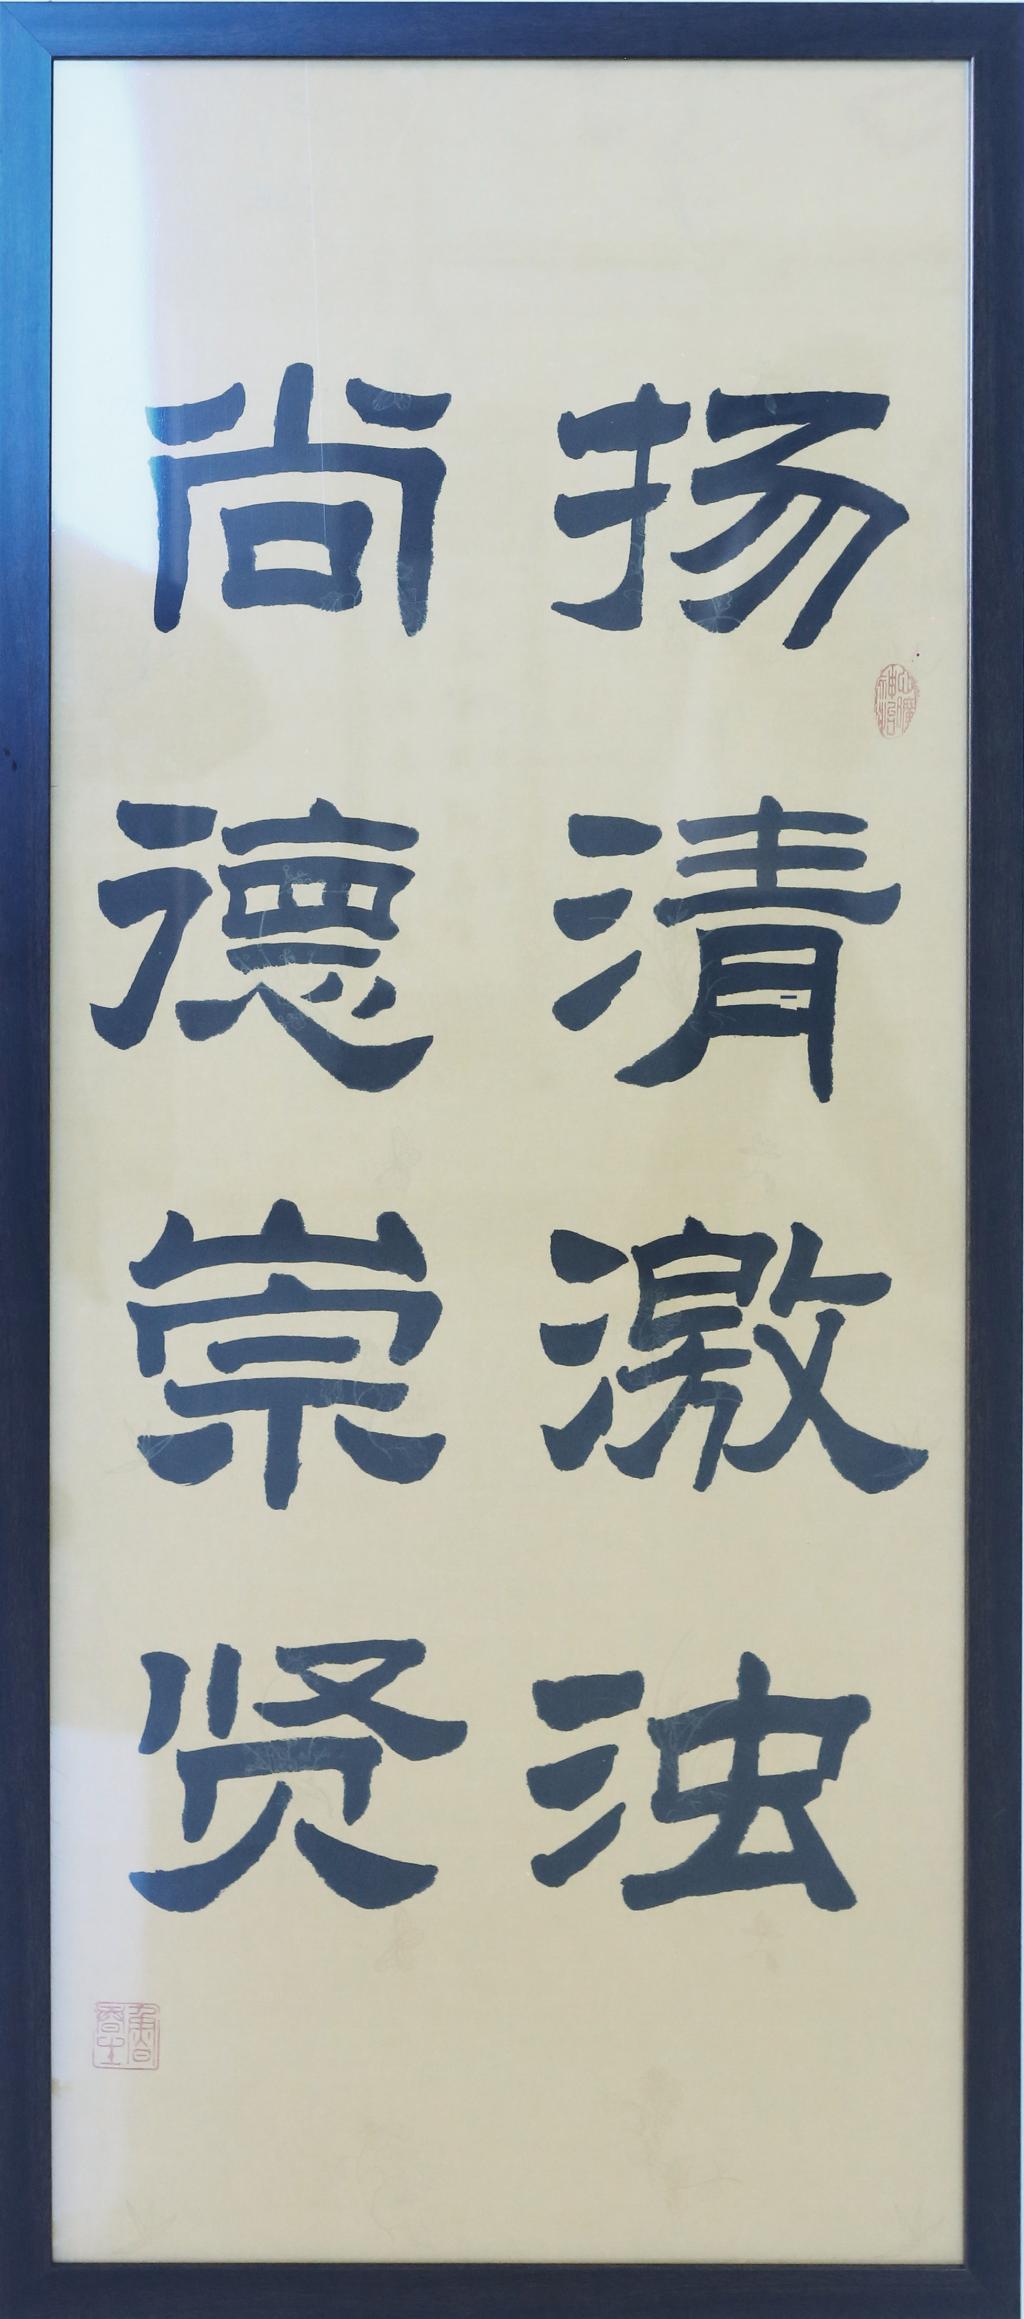 扬清激浊
尚德崇贤